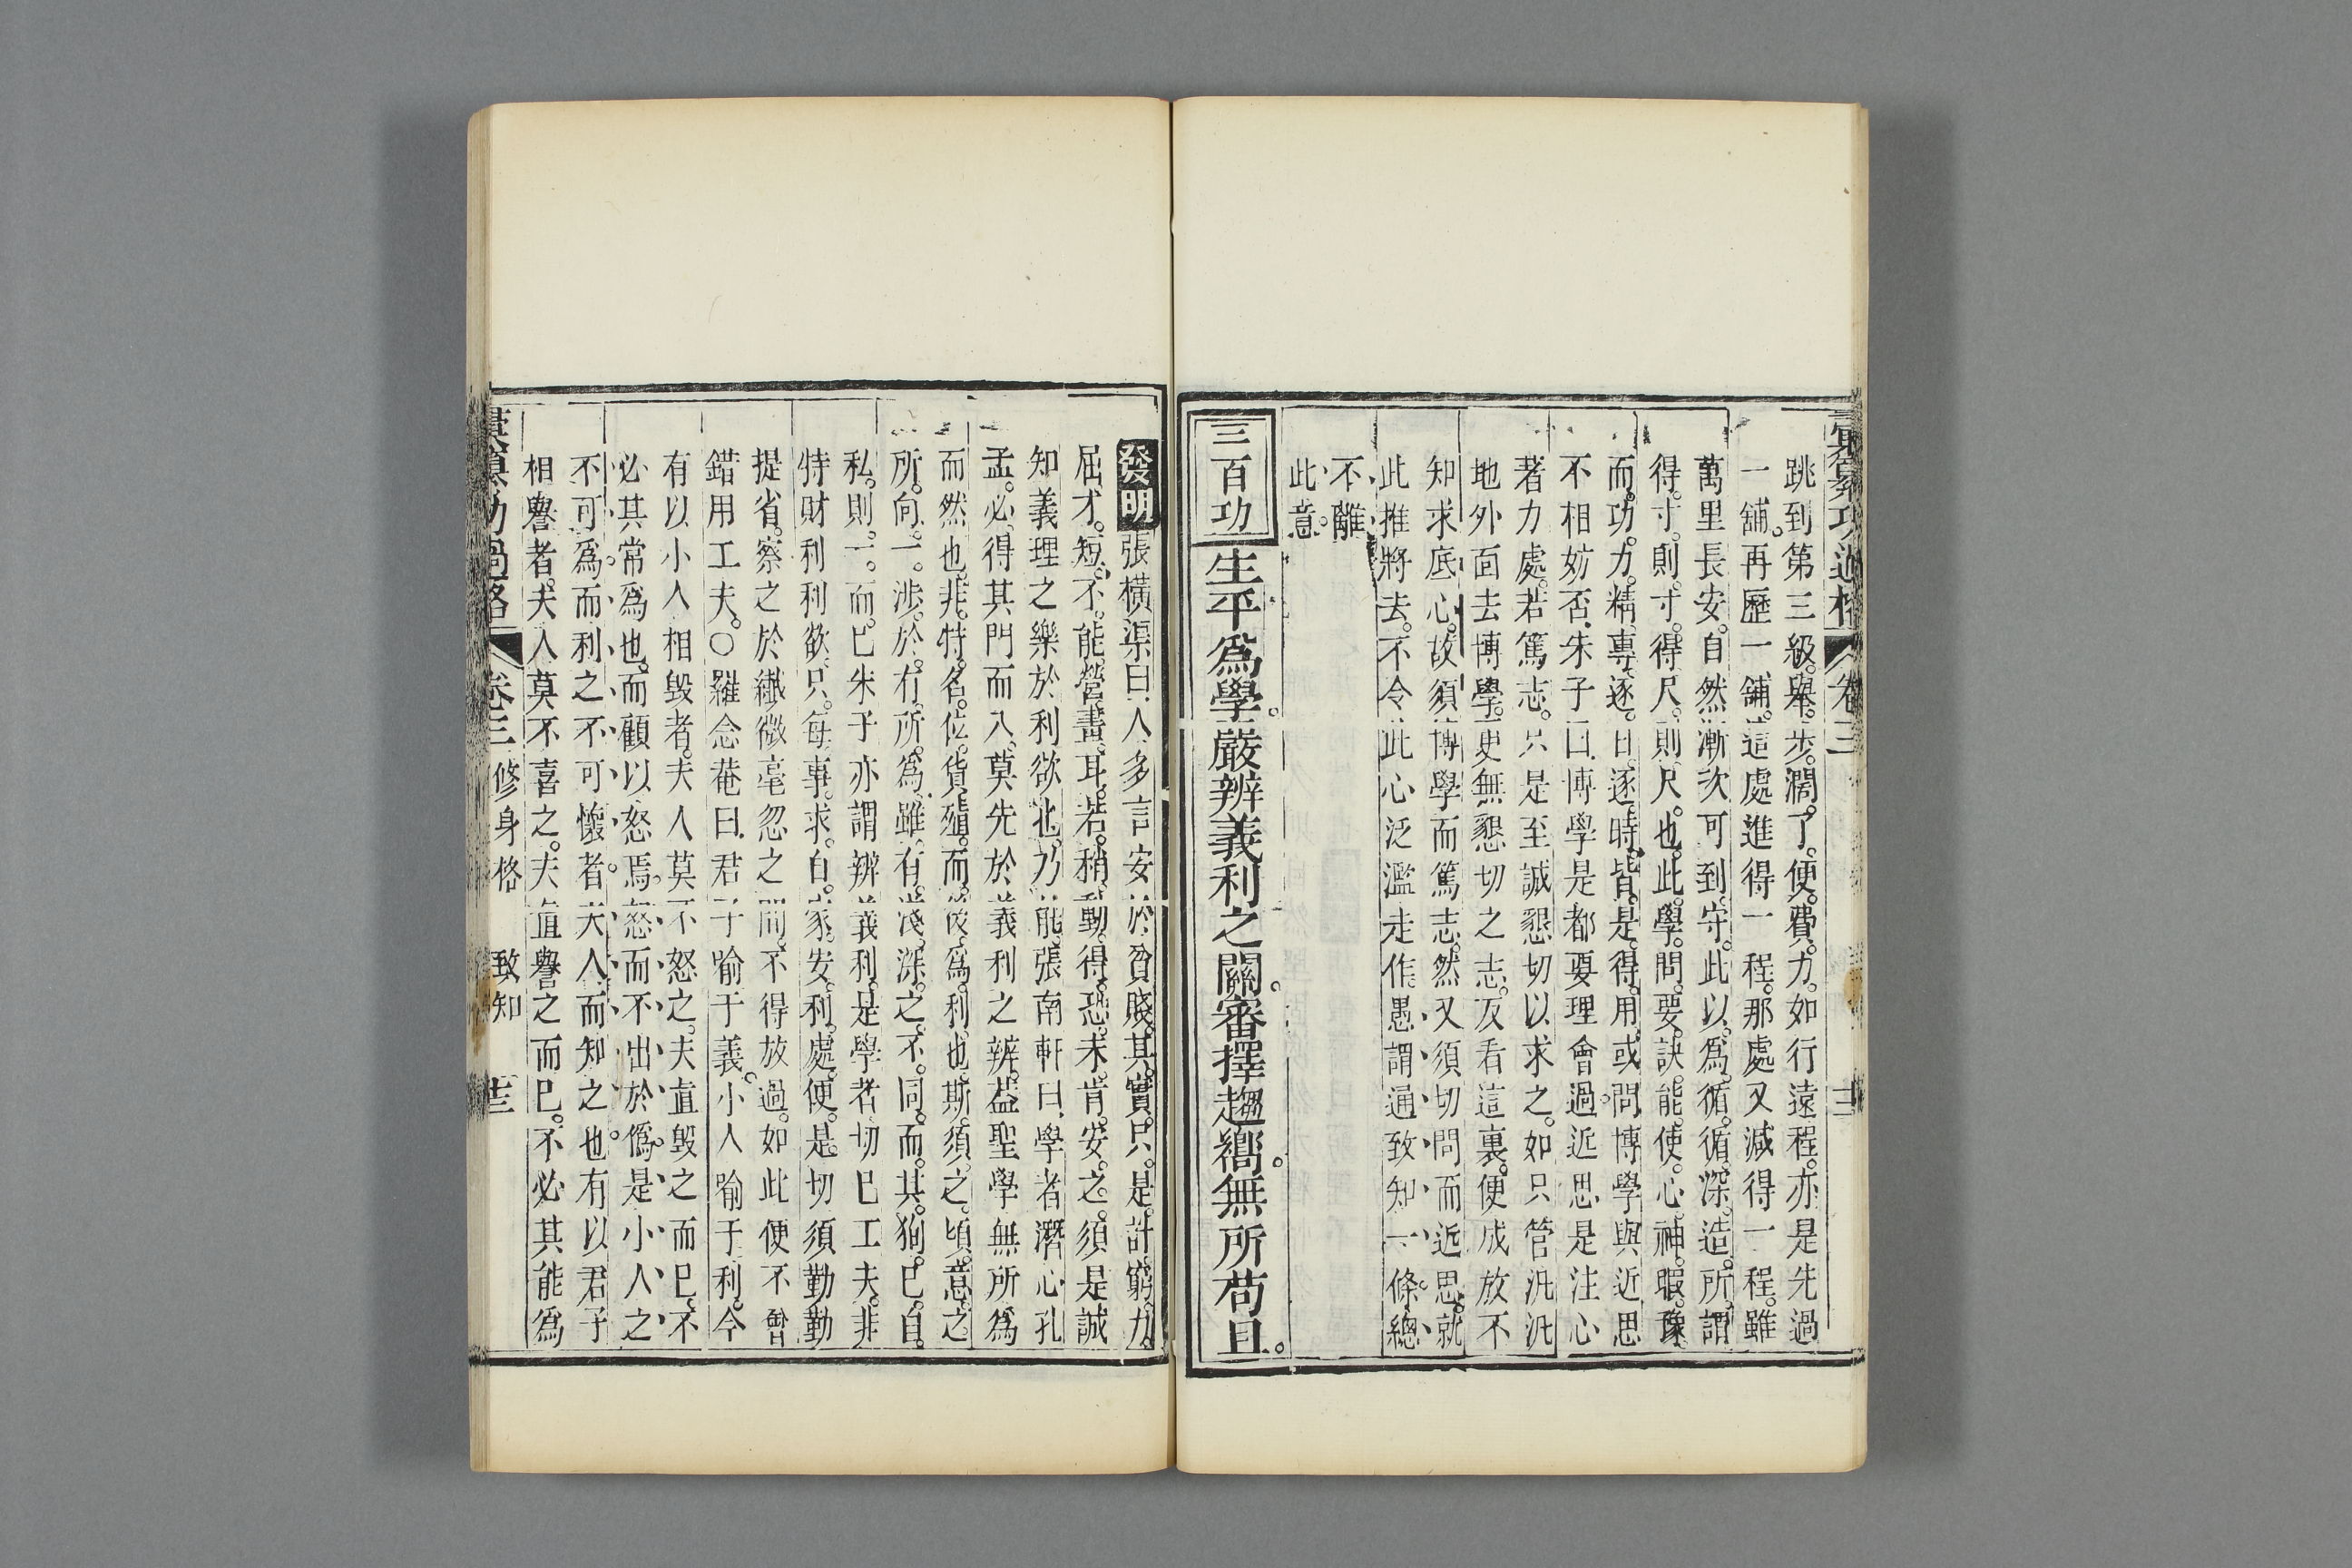 彙纂功過格 卷三 十二
跳到第三級。舉步闊了。便費力。如行遠程。亦是先過
一舖。再歷一舖。這處進得一程。那處又減得一程。雖
萬里長安。自然漸次可到。守此以爲循循深造。所謂
得寸則寸。得尺則尺也。此學問要訣。能使心神暇豫
而功力精專。逐日逐時。皆是得用。或問博學與近思
不相妨否。朱子曰。博學是都要理會過。近思是注心
著力處。若篤志。只是至誠懇切以求之。如只管汎汎
地外面去博學。更無懇切之志。反看這裏。便成放不
知求底心。故須博學而篤志。然又須切問而近思。就
此推將去。不令此心泛濫走作。愚謂通致知一條。總
不離
此意。
三百功 生平爲學。嚴辨義利之關。審擇趨嚮。無所苟且。
發明 張橫渠曰。人多言安於貧賤。其實只是計窮力
屈才短。不能營畫耳。若稍動得。恐未肯安之。須是誠
知義理之樂於利欲也。乃能。張南軒曰。學者潛心孔
孟。必得其門而入。莫先於義利之辨。蓋聖學無所爲
而然也。非特名位貨殖而後爲利也。斯須之頃。意之
所向。一涉於有所爲。雖有淺深之不同。而其狥己自
私則一而已。朱子亦謂辨義利。是學者切己工夫。非
特財利利欲。只每事求自家安利處。便是。切須勤勤
提省。察之於纖微毫忽之間。不得放過。如此便不曾
錯用工夫。○羅念菴曰。君子喻于義。小人喻于利。今
有以小人相毀者。夫人莫不怒之。夫直毀之而已。不
必其常爲也。而顧以怒焉。怒而不出於僞。是小人之
不可爲而利之不可懷者。夫人而知之也。有以君子
相譽者。夫人莫不喜之。夫直譽之而已。不必其能爲
彙纂功過格 卷三 修身格 致知 十三